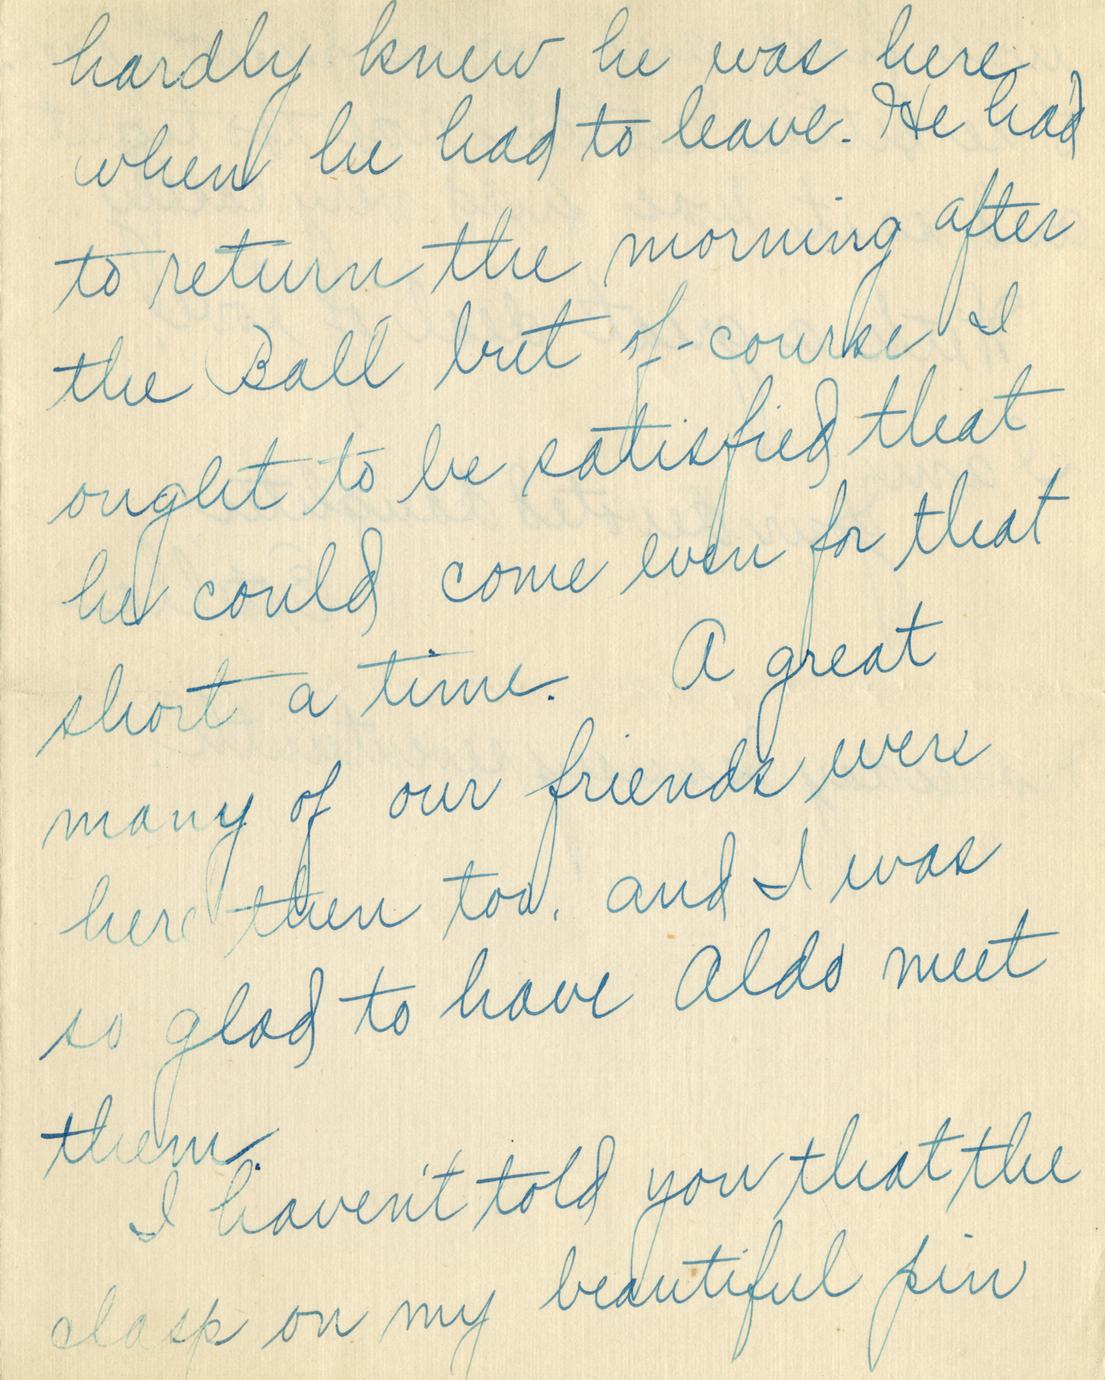 hardly knew he was here
when he had to leave. He had
to return the morning after
the Ball but of-course I
ought to be satisfied that
he could come even for that
short a time. A great
many of our friends were
here then too, and I was
so glad to have Aldo meet
them.
I haven't told you that the
clasp on my beautiful pin